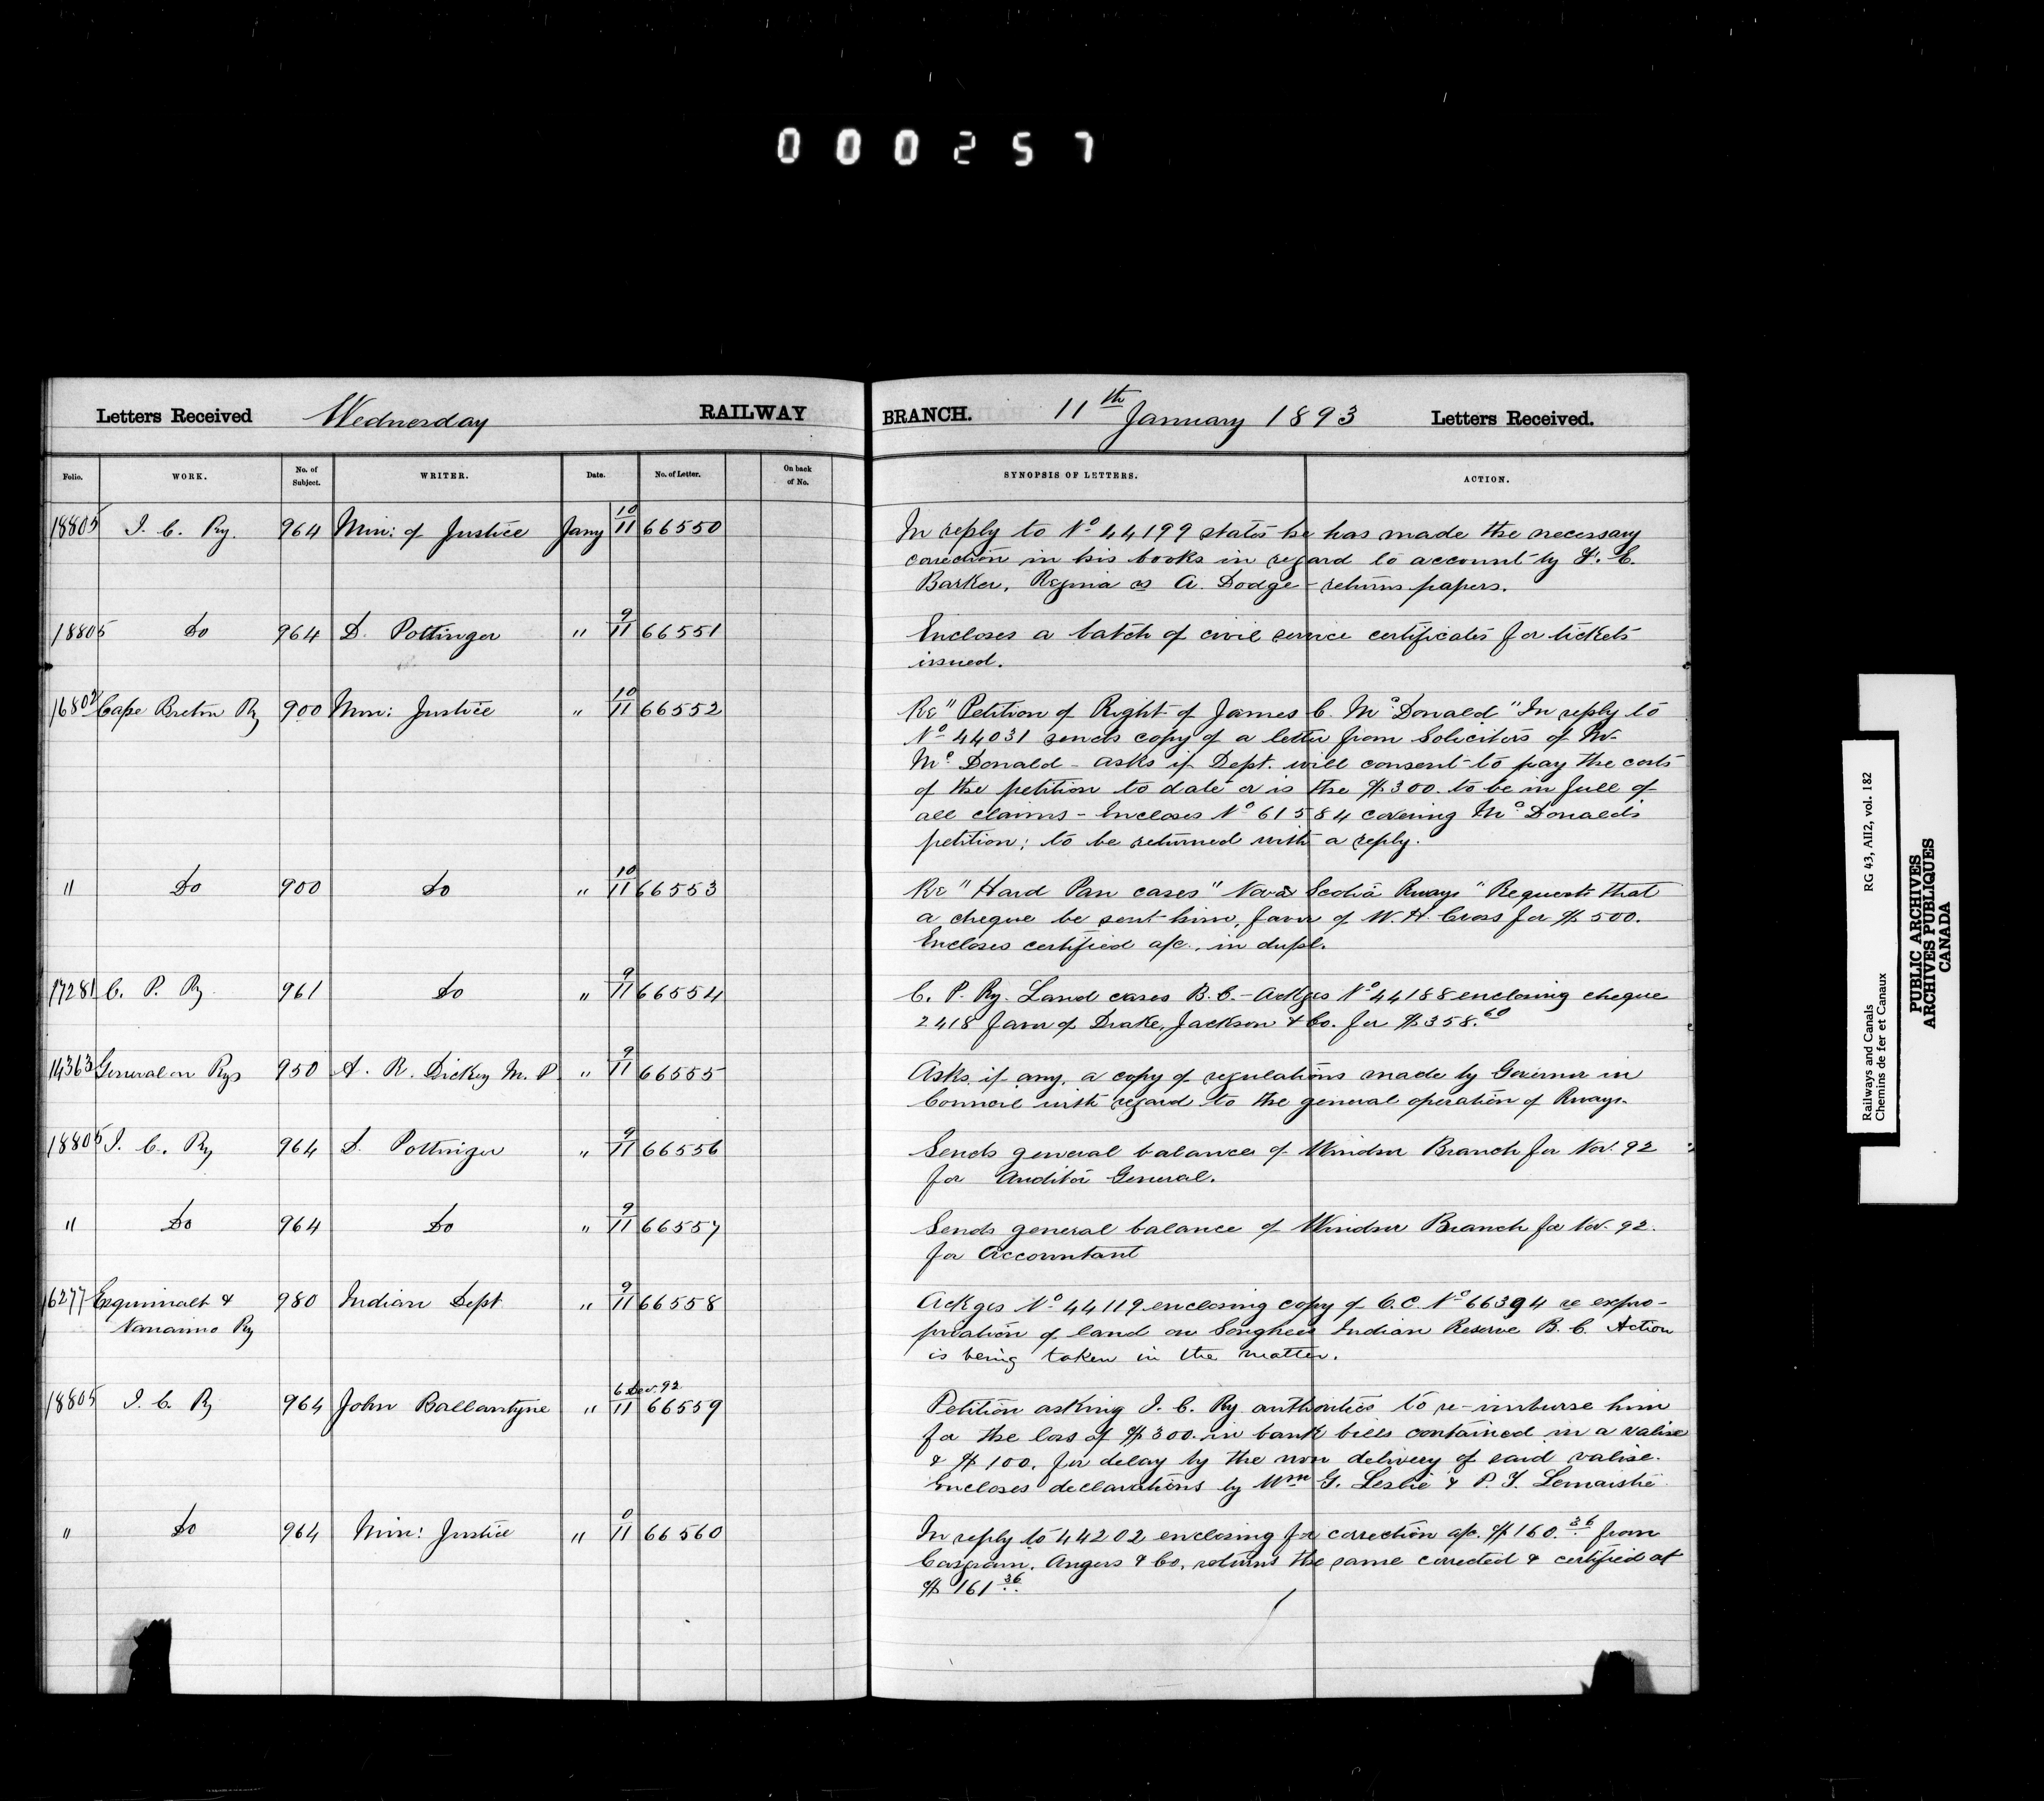 000257
Letters Received Wednesday RAILWAY BRANCH. 11th January 1893 Letters Received.
Folio. WORK. No. of Subject. WRITER. Date. No. of Letter. On back of No. SYNOPSIS OF LETTERS. ACTION.
18805 I. C. Ry. 964 Min: of Justice Jany 10/11 66550 In reply to No 44199 states he has made the necessary
correction in his books in regard to account by F. C.
Barker, Regina vs A. Dodge - returns papers.
18805 Do 964 D. Pottinger " 9/11 66551 Encloses a batch of civil service certificates for tickets
issued.
16802 Cape Breton Ry 900 Min: Justice " 10/11 66552 Re "Petition of Right of James C. McDonald" In reply to
No 44031 sends copy of a letter from Solicitors of Mr.
McDonald - asks if Dept. will consent to pay the costs
of the petition to date or is the $300. to be in full of
all claims - Encloses No 61584 covering McDonald's
petition; to be returned with a reply.
" Do 900 Do " 10/11 66553 Re "Hard Pan cases" Nova Scotia Rways" Requests that
a cheque be sent him, favor of W. H. Cross for $500.
Encloses certified a/c. in dupl.
17281 C. P. Ry. 961 Do " 9/11 66554 C. P. Ry. Land cases B.C. - Ackges No 44188 enclosing cheque
2418 favor of Drake, Jackson & Co. for $358.60
14363 General on Rys 950 A. R. Dickey M. P. " 9/11 66555 Asks, if any, a copy of regulations made by Governor in
Council with regard to the general operation of Rways.
18805 I. C. Ry 964 D. Pottinger " 9/11 66556 Sends general balance of Windsor Branch for Nov. 92
for Auditor General.
" Do 964 Do " 9/11 66557 Sends general balance of Windsor Branch for Nov. 92.
for Accountant
16277 Esquimalt & 980 Indian Dept " 9/11 66558 Ackges No 44119 enclosing copy of O.C. No 66394 re expro-
Nanaimo Ry priation of land on Songhees Indian Reserve B. C. Action
is being taken in the matter.
18805 I. C. Ry 964 John Ballantyne " 6 Dec. 92/11 66559 Petition asking I. C. Ry authorities to re-imburse him
for the loss of $300. in bank bills contained in a valise
& $100. for delay by the non delivery of said valise.
Encloses declarations by Wm G. Leslie & P. J. Lemaistre
" Do 964 Min: Justice " 0/11 66560 In reply to 44202 enclosing for correction a/c. $160.36 from
Casgrain, Angers & Co, returns the same corrected & certified at
$161.36
Railways and Canals RG 43, AII2, vol. 182
Chemins de fer et Canaux
PUBLIC ARCHIVES
ARCHIVES PUBLIQUES
CANADA